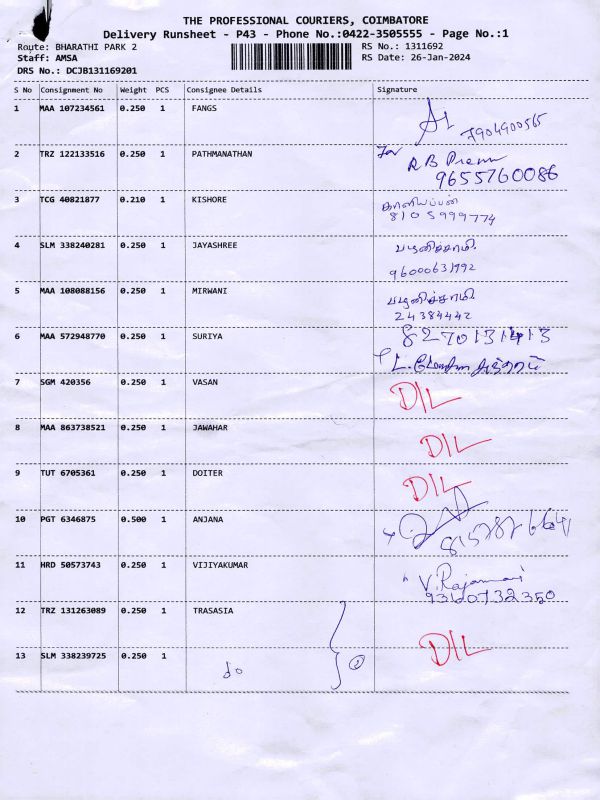 THE PROFESSIONAL COURIERS, COIMBATORE
Delivery Runsheet - P43 - Phone No.:0422-3505555 - Page No.:1
Route: BHARATHI PARK 2
RS No.: 1311692
Staff: AMSA
RS Date: 26-Jan-2024
DRS No.: DCJB131169201
S No Consignment No Weight PCS Consignee Details Signature
1 MAA 107234561 0.250 1 FANGS
7904900565
2 TRZ 122133516 0.250 1 PATHMANATHAN For
R B Prem
9655760086
3 TCG 40821877 0.210 1 KISHORE காளியப்பன்
8105999774
4 SLM 338240281 0.250 1 JAYASHREE பழனிச்சாமி
96000631992
5 MAA 108088156 0.250 1 MIRWANI பழனிச்சாமி
24384442
6 MAA 572948770 0.250 1 SURIYA 8270131413
7 SGM 420356 0.250 1 VASAN DIL
8 MAA 863738521 0.250 1 JAWAHAR DIL
9 TUT 6705361 0.250 1 DOITER DIL
10 PGT 6346875 0.500 1 ANJANA
11 HRD 50573743 0.250 1 VIJIYAKUMAR V. Rajammai
12 TRZ 131263089 0.250 1 TRASASIA DIL
13 SLM 338239725 0.250 1 do 2